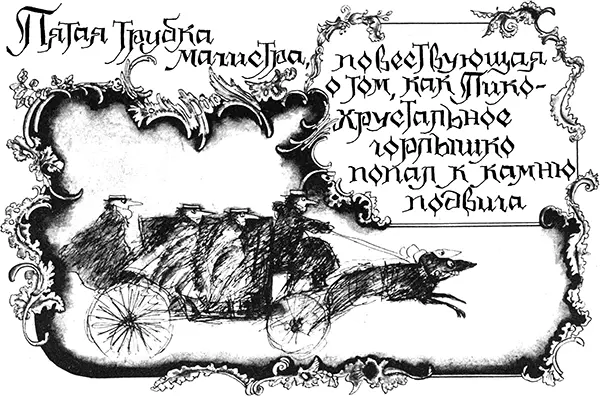 Пятая трубка
магистра,
повествующая
о том, как Пико-
хрустальное
горлышко
попал к камню
подвига